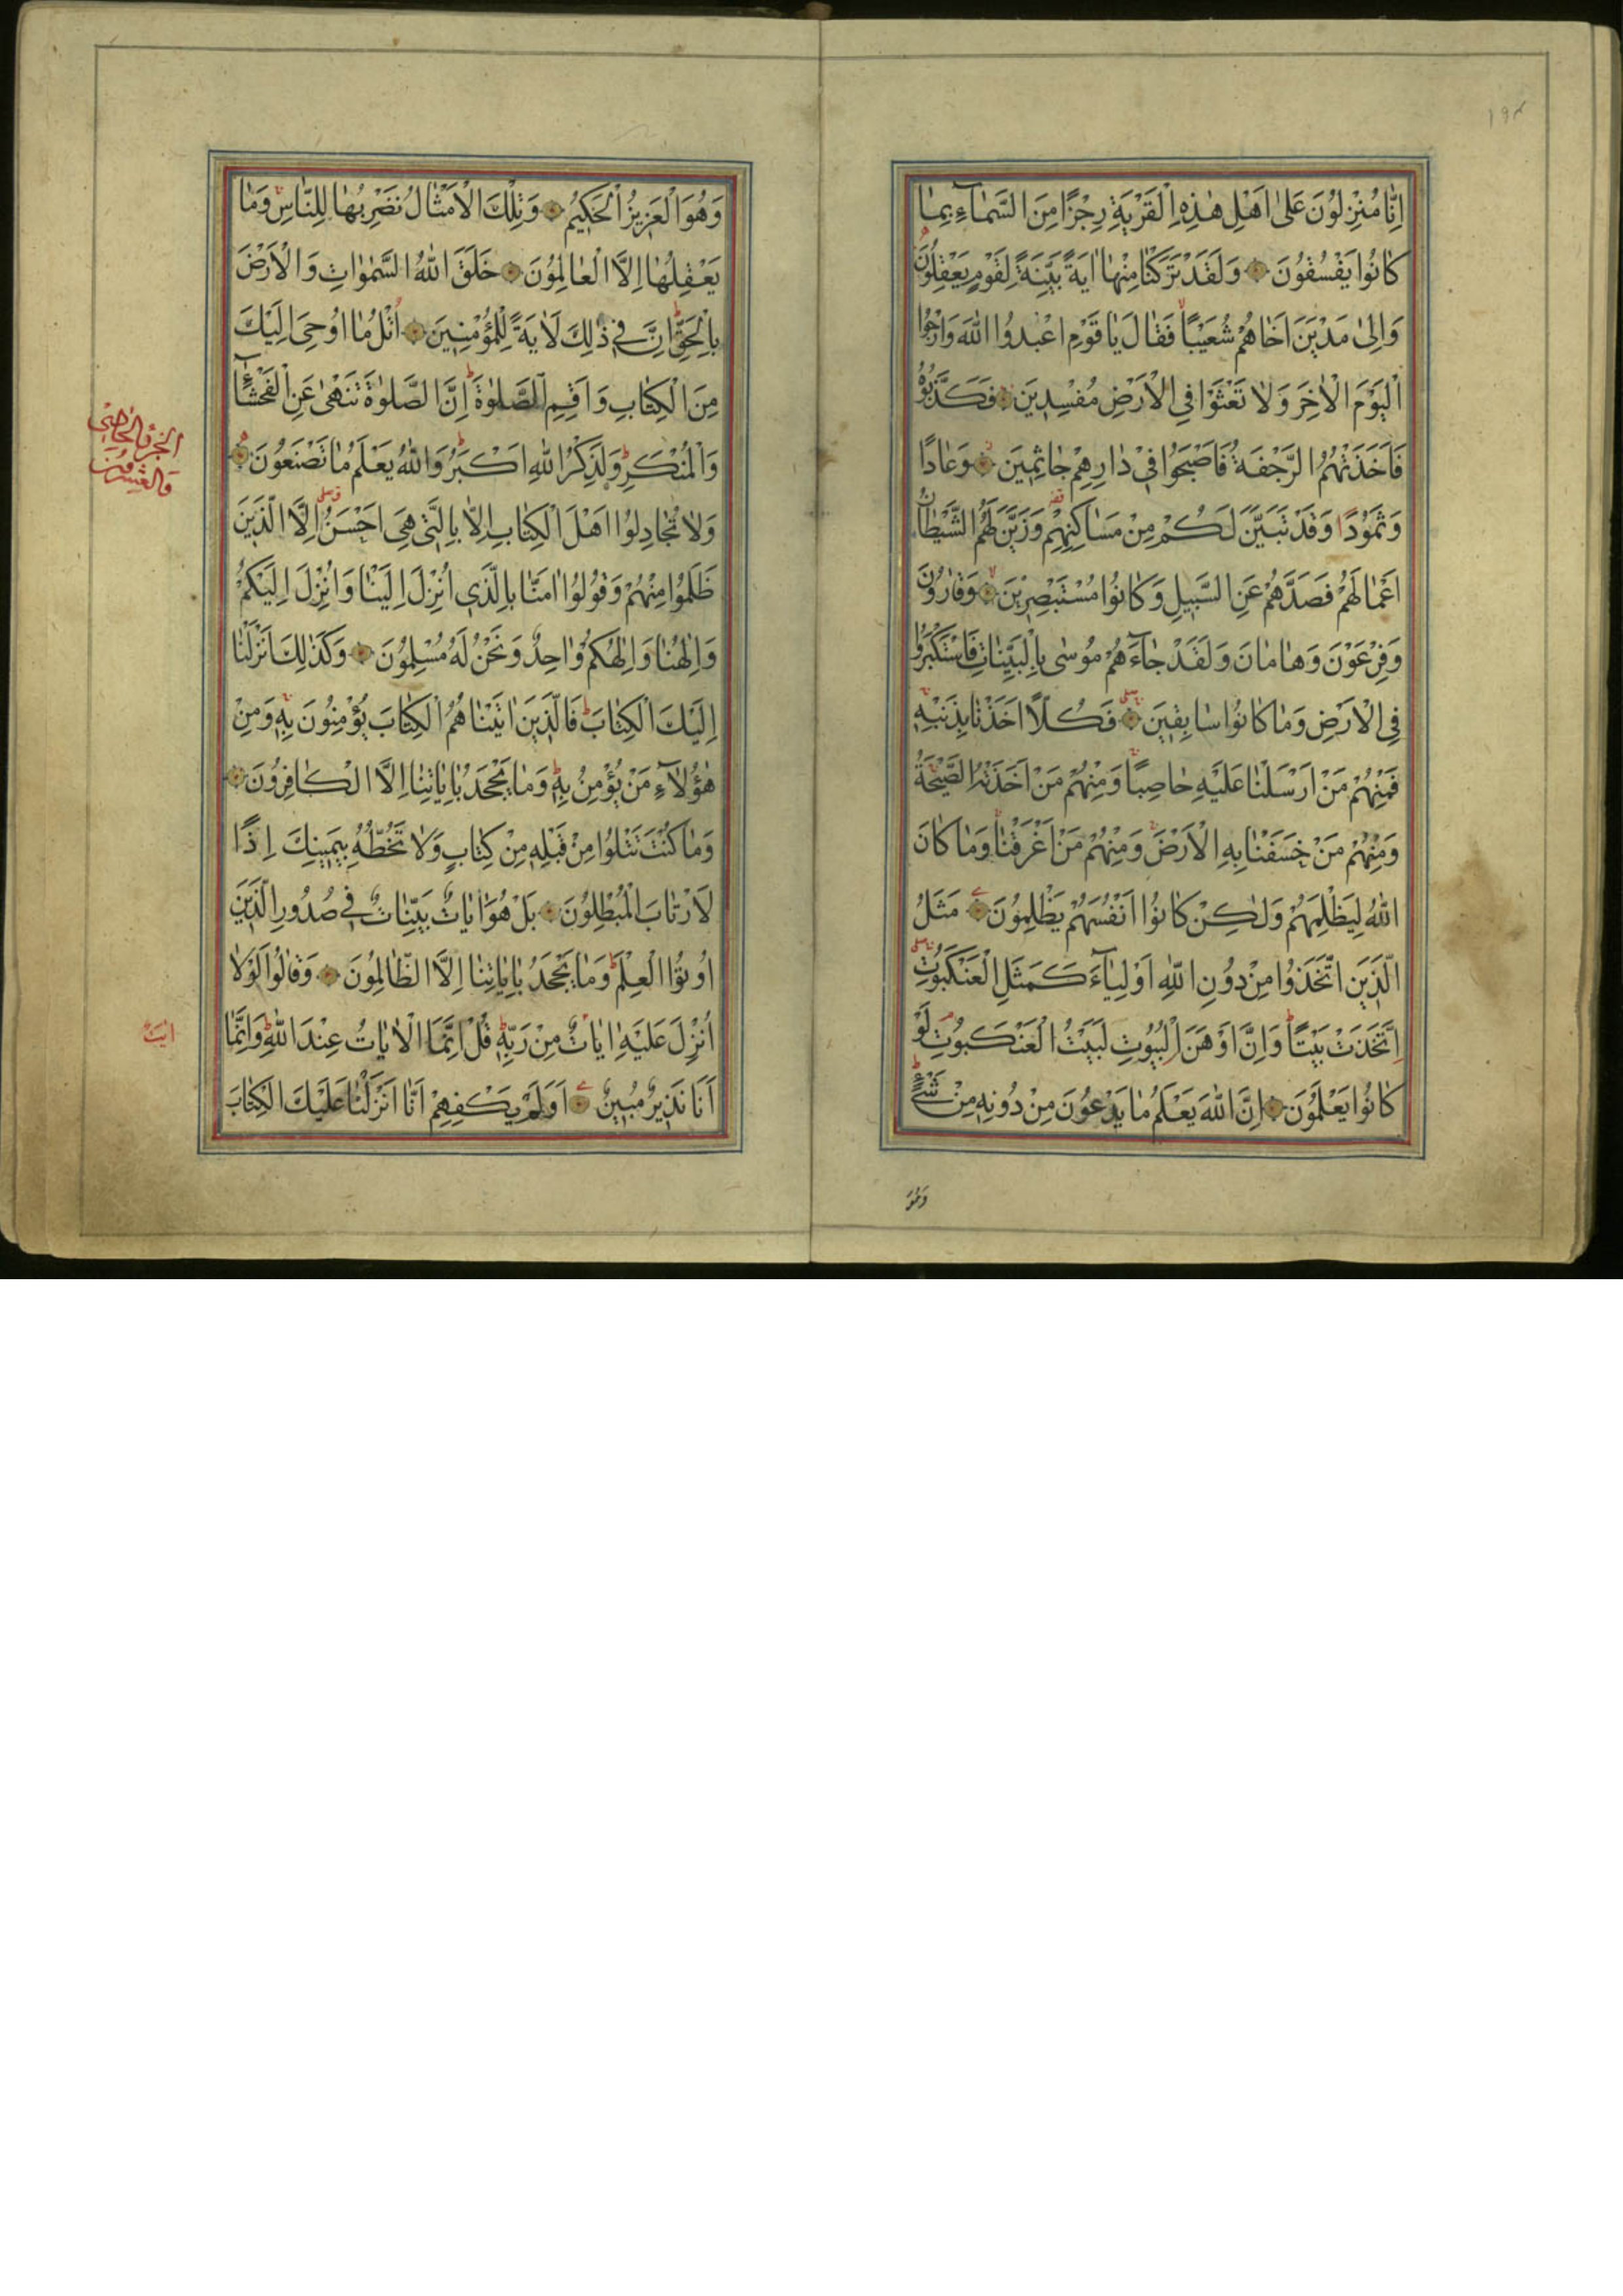 ١٩٤
اِنَّا مُنْزِلُونَ عَلٰى اَهْلِ هٰذِهِ الْقَرْيَةِ رِجْزًا مِنَ السَّمَاۤءِ بِمَا
كَانُوا يَفْسُقُونَ وَلَقَدْ تَرَكْنَا مِنْهَا اٰيَةً بَيِّنَةً لِقَوْمٍ يَعْقِلُونَ
وَاِلٰى مَدْيَنَ اَخَاهُمْ شُعَيْبًا فَقَالَ يَا قَوْمِ اعْبُدُوا اللّٰهَ وَارْجُوا
الْيَوْمَ الْاٰخِرَ وَلَا تَعْثَوْا فِي الْاَرْضِ مُفْسِدِينَ فَكَذَّبُوهُ
فَاَخَذَتْهُمُ الرَّجْفَةُ فَاَصْبَحُوا فِي دَارِهِمْ جَاثِمِينَ وَعَادًا
وَثَمُودًا وَقَدْ تَبَيَّنَ لَكُمْ مِنْ مَسَاكِنِهِمْ وَزَيَّنَ لَهُمُ الشَّيْطَانُ
اَعْمَالَهُمْ فَصَدَّهُمْ عَنِ السَّبِيلِ وَكَانُوا مُسْتَبْصِرِينَ وَقَارُونَ
وَفِرْعَوْنَ وَهَامَانَ وَلَقَدْ جَاۤءَهُمْ مُوسٰى بِالْبَيِّنَاتِ فَاسْتَكْبَرُوا
فِي الْاَرْضِ وَمَا كَانُوا سَابِقِينَ فَكُلًّا اَخَذْنَا بِذَنْبِهِ
فَمِنْهُمْ مَنْ اَرْسَلْنَا عَلَيْهِ حَاصِبًا وَمِنْهُمْ مَنْ اَخَذَتْهُ الصَّيْحَةُ
وَمِنْهُمْ مَنْ خَسَفْنَا بِهِ الْاَرْضَ وَمِنْهُمْ مَنْ اَغْرَقْنَا وَمَا كَانَ
اللّٰهُ لِيَظْلِمَهُمْ وَلٰكِنْ كَانُوا اَنْفُسَهُمْ يَظْلِمُونَ مَثَلُ
الَّذِينَ اتَّخَذُوا مِنْ دُونِ اللّٰهِ اَوْلِيَاۤءَ كَمَثَلِ الْعَنْكَبُوتِ
اِتَّخَذَتْ بَيْتًا وَاِنَّ اَوْهَنَ الْبُيُوتِ لَبَيْتُ الْعَنْكَبُوتِ لَوْ
كَانُوا يَعْلَمُونَ اِنَّ اللّٰهَ يَعْلَمُ مَا يَدْعُونَ مِنْ دُونِهِ مِنْ شَيْءٍ
وَهُوَ
وَهُوَ الْعَزِيزُ الْحَكِيمُ وَتِلْكَ الْاَمْثَالُ نَضْرِبُهَا لِلنَّاسِ وَمَا
يَعْقِلُهَا اِلَّا الْعَالِمُونَ خَلَقَ اللّٰهُ السَّمٰوَاتِ وَالْاَرْضَ
بِالْحَقِّ اِنَّ فِي ذٰلِكَ لَاٰيَةً لِلْمُؤْمِنِينَ اُتْلُ مَا اُوحِيَ اِلَيْكَ
مِنَ الْكِتَابِ وَاَقِمِ الصَّلٰوةَ اِنَّ الصَّلٰوةَ تَنْهٰى عَنِ الْفَحْشَاۤءِ
وَالْمُنْكَرِ وَلَذِكْرُ اللّٰهِ اَكْبَرُ وَاللّٰهُ يَعْلَمُ مَا تَصْنَعُونَ
الجزء الحادي
والعشرون
وَلَا تُجَادِلُوا اَهْلَ الْكِتَابِ اِلَّا بِالَّتِي هِيَ اَحْسَنُ اِلَّا الَّذِينَ
ظَلَمُوا مِنْهُمْ وَقُولُوا اٰمَنَّا بِالَّذِي اُنْزِلَ اِلَيْنَا وَاُنْزِلَ اِلَيْكُمْ
وَاِلٰهُنَا وَاِلٰهُكُمْ وَاحِدٌ وَنَحْنُ لَهُ مُسْلِمُونَ وَكَذٰلِكَ اَنْزَلْنَا
اِلَيْكَ الْكِتَابَ فَالَّذِينَ اٰتَيْنَاهُمُ الْكِتَابَ يُؤْمِنُونَ بِهِ وَمِنْ
هٰؤُلَاۤءِ مَنْ يُؤْمِنُ بِهِ وَمَا يَجْحَدُ بِاٰيَاتِنَا اِلَّا الْكَافِرُونَ
وَمَا كُنْتَ تَتْلُوا مِنْ قَبْلِهِ مِنْ كِتَابٍ وَلَا تَخُطُّهُ بِيَمِينِكَ اِذًا
لَارْتَابَ الْمُبْطِلُونَ بَلْ هُوَ اٰيَاتٌ بَيِّنَاتٌ فِي صُدُورِ الَّذِينَ
اُوتُوا الْعِلْمَ وَمَا يَجْحَدُ بِاٰيَاتِنَا اِلَّا الظَّالِمُونَ وَقَالُوا لَوْلَا
اُنْزِلَ عَلَيْهِ اٰيَاتٌ مِنْ رَبِّهِ قُلْ اِنَّمَا الْاٰيَاتُ عِنْدَ اللّٰهِ وَاِنَّمَا
اَنَا نَذِيرٌ مُبِينٌ اَوَلَمْ يَكْفِهِمْ اَنَّا اَنْزَلْنَا عَلَيْكَ الْكِتَابَ